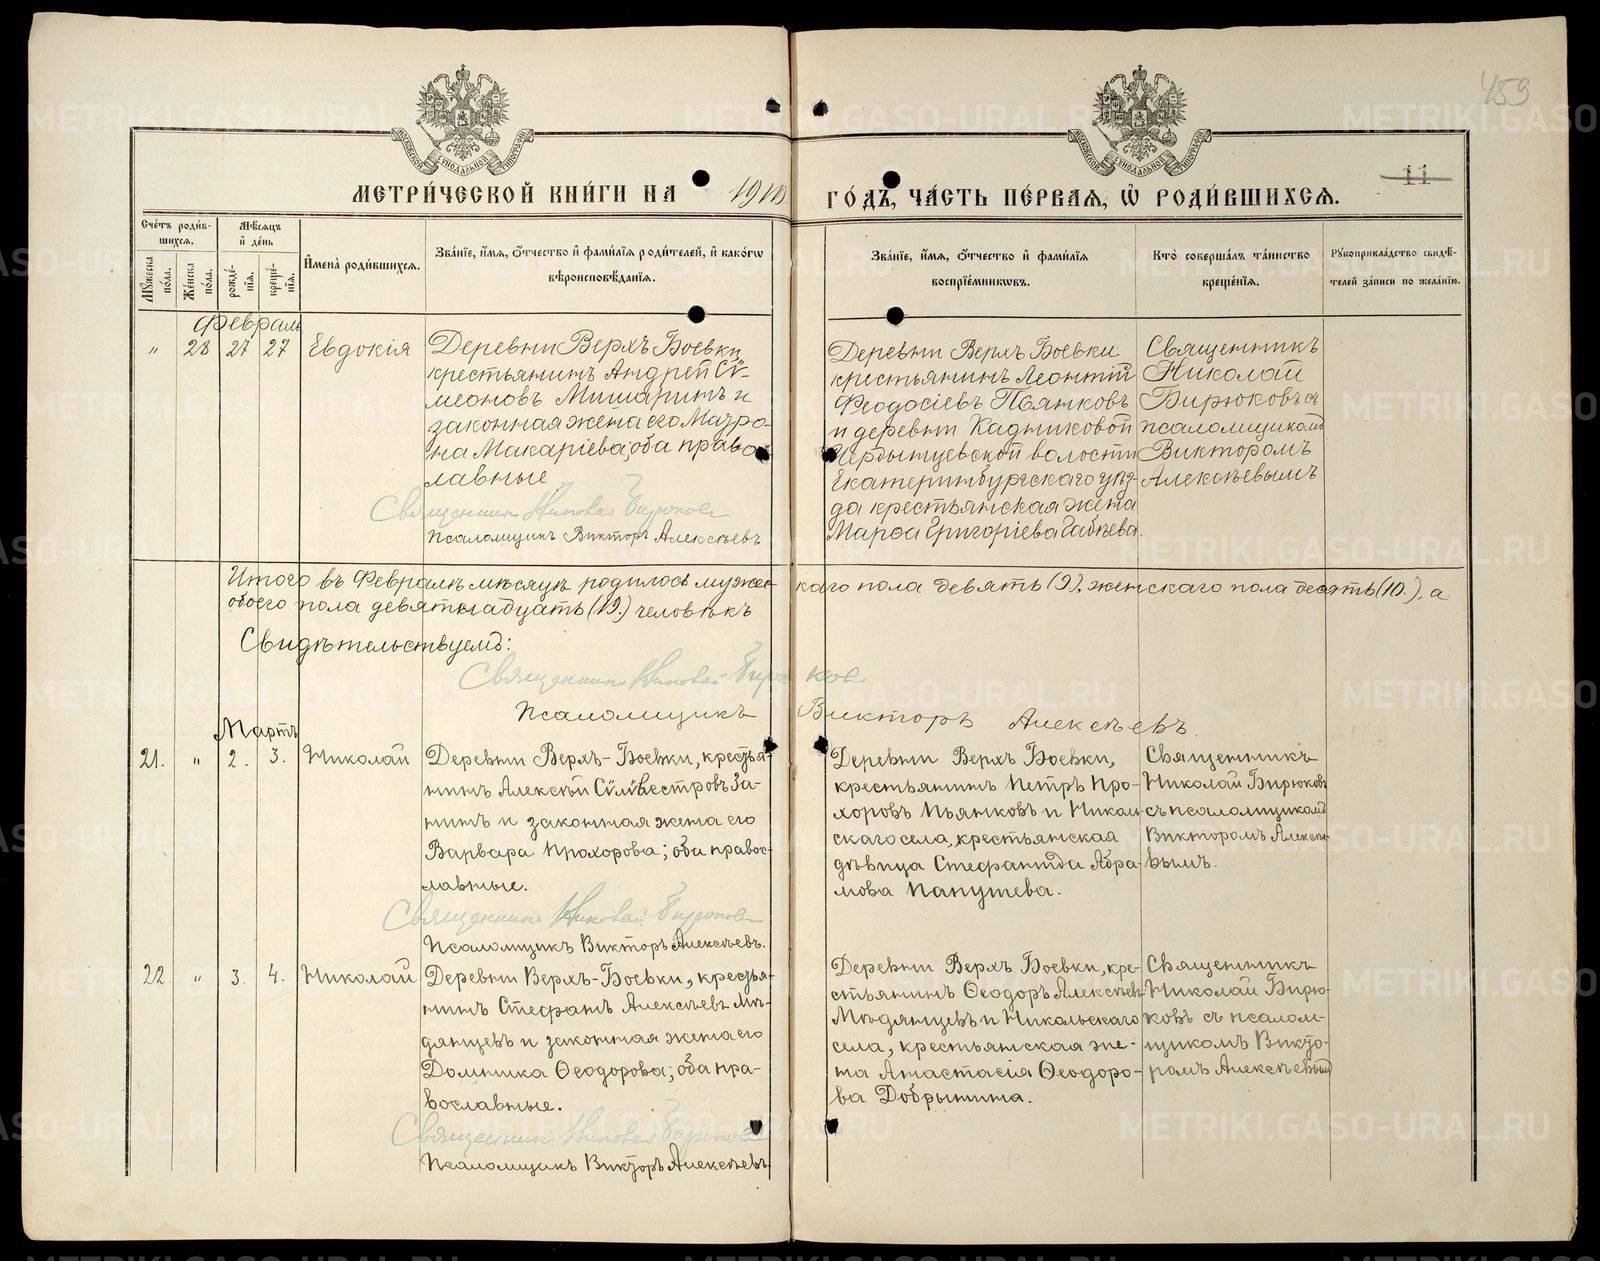 459
11
МЕТРИ́ЧЕСКОЙ КНИ́ГИ НА 1910
ГО́ДЪ, ЧА́СТЬ ПЕ́РВАЯ, Ѽ РОДИ́ВШИХСЯ.
Сче́тъ роди́вшихся.
Мꙋ́жеска по́ла.
Же́нска по́ла.
Мѣ́сяцъ и҆ де́нь
рожде́нїя.
креще́нїя.
И҆мена̀ роди́вшихся.
Зва́нїе, и҆́мя, ѻ҆́тчество и҆ фами́лїя роди́телей, и҆ како́гѡ
вѣроисповѣ́данїя.
Зва́нїе, и҆́мя, ѻ҆́тчество и҆ фами́лїя
воспрїе́мникѡвъ.
Кто̀ соверша́лъ та́инство
креще́нїя.
Рꙋкоприкла́дство свидѣ́-
телей за́писи по жела́нїю.
Февраль
" 28 27 27 Евдокія
Деревни Верхъ Боевки,
крестьянинъ Андрей Сѵ-
меоновъ Мишаринъ и
законная жена его Мавро-
на Макаріева; оба право-
славные.
Священникъ Николай Бирюковъ
Псаломщикъ Викторъ Алексѣевъ
Деревни Верхъ Боевки
крестьянинъ Леонтій
Феодосіевъ Пьянковъ
и деревни Кадниковой
волости
Екатеринбургскаго уѣз-
да крестьянская жена
Марѳа Григоріева
Священникъ
Николай
Бирюковъ съ
псаломщикомъ
Викторомъ
Алексѣевымъ
Итого въ Февралѣ мѣсяцѣ родилось мужес-
каго пола девять (9), женскаго пола десять (10.), а
обоего пола девятнадцать (19.) человѣкъ
Свидѣтельствуемъ:
Священникъ Николай Бирюковъ
Псаломщикъ Викторъ Алексѣевъ.
Мартъ
21. " 2. 3. Николай
Деревни Верхъ-Боевки, крестья-
нинъ Алексѣй Сѵлѵвестровъ За-
нинъ и законная жена его
Варвара Прохорова; оба правос-
лавные.
Священникъ Николай Бирюковъ
Псаломщикъ Викторъ Алексѣевъ.
Деревни Верхъ Боевки,
крестьянинъ Петръ Про-
хоровъ Пьянковъ и Николь-
скаго села, крестьянская
дѣвица Стефанида Абра-
мова Папушева.
Священникъ
Николай Бирюковъ
съ псаломщикомъ
Викторомъ Алексѣ-
вымъ.
22. " 3. 4. Николай
Деревни Верхъ-Боевки, крестья-
нинъ Стефанъ Алексѣевъ Мѣ-
дянцевъ и законная жена его
Домника Ѳеодорова; оба пра-
вославные.
Священникъ Николай Бирюковъ
Псаломщикъ Викторъ Алексѣевъ.
Деревни Верхъ Боевки, кре-
стьянинъ Ѳеодоръ Алексѣевъ
Мѣдянцевъ и Никольскаго
села, крестьянская же-
на Анастасія Ѳеодоро-
ва Добрынина.
Священникъ
Николай Бирю-
ковъ съ псалом-
щикомъ Викто-
ромъ Алексѣевымъ
METRIKI.GASO-URAL.RU